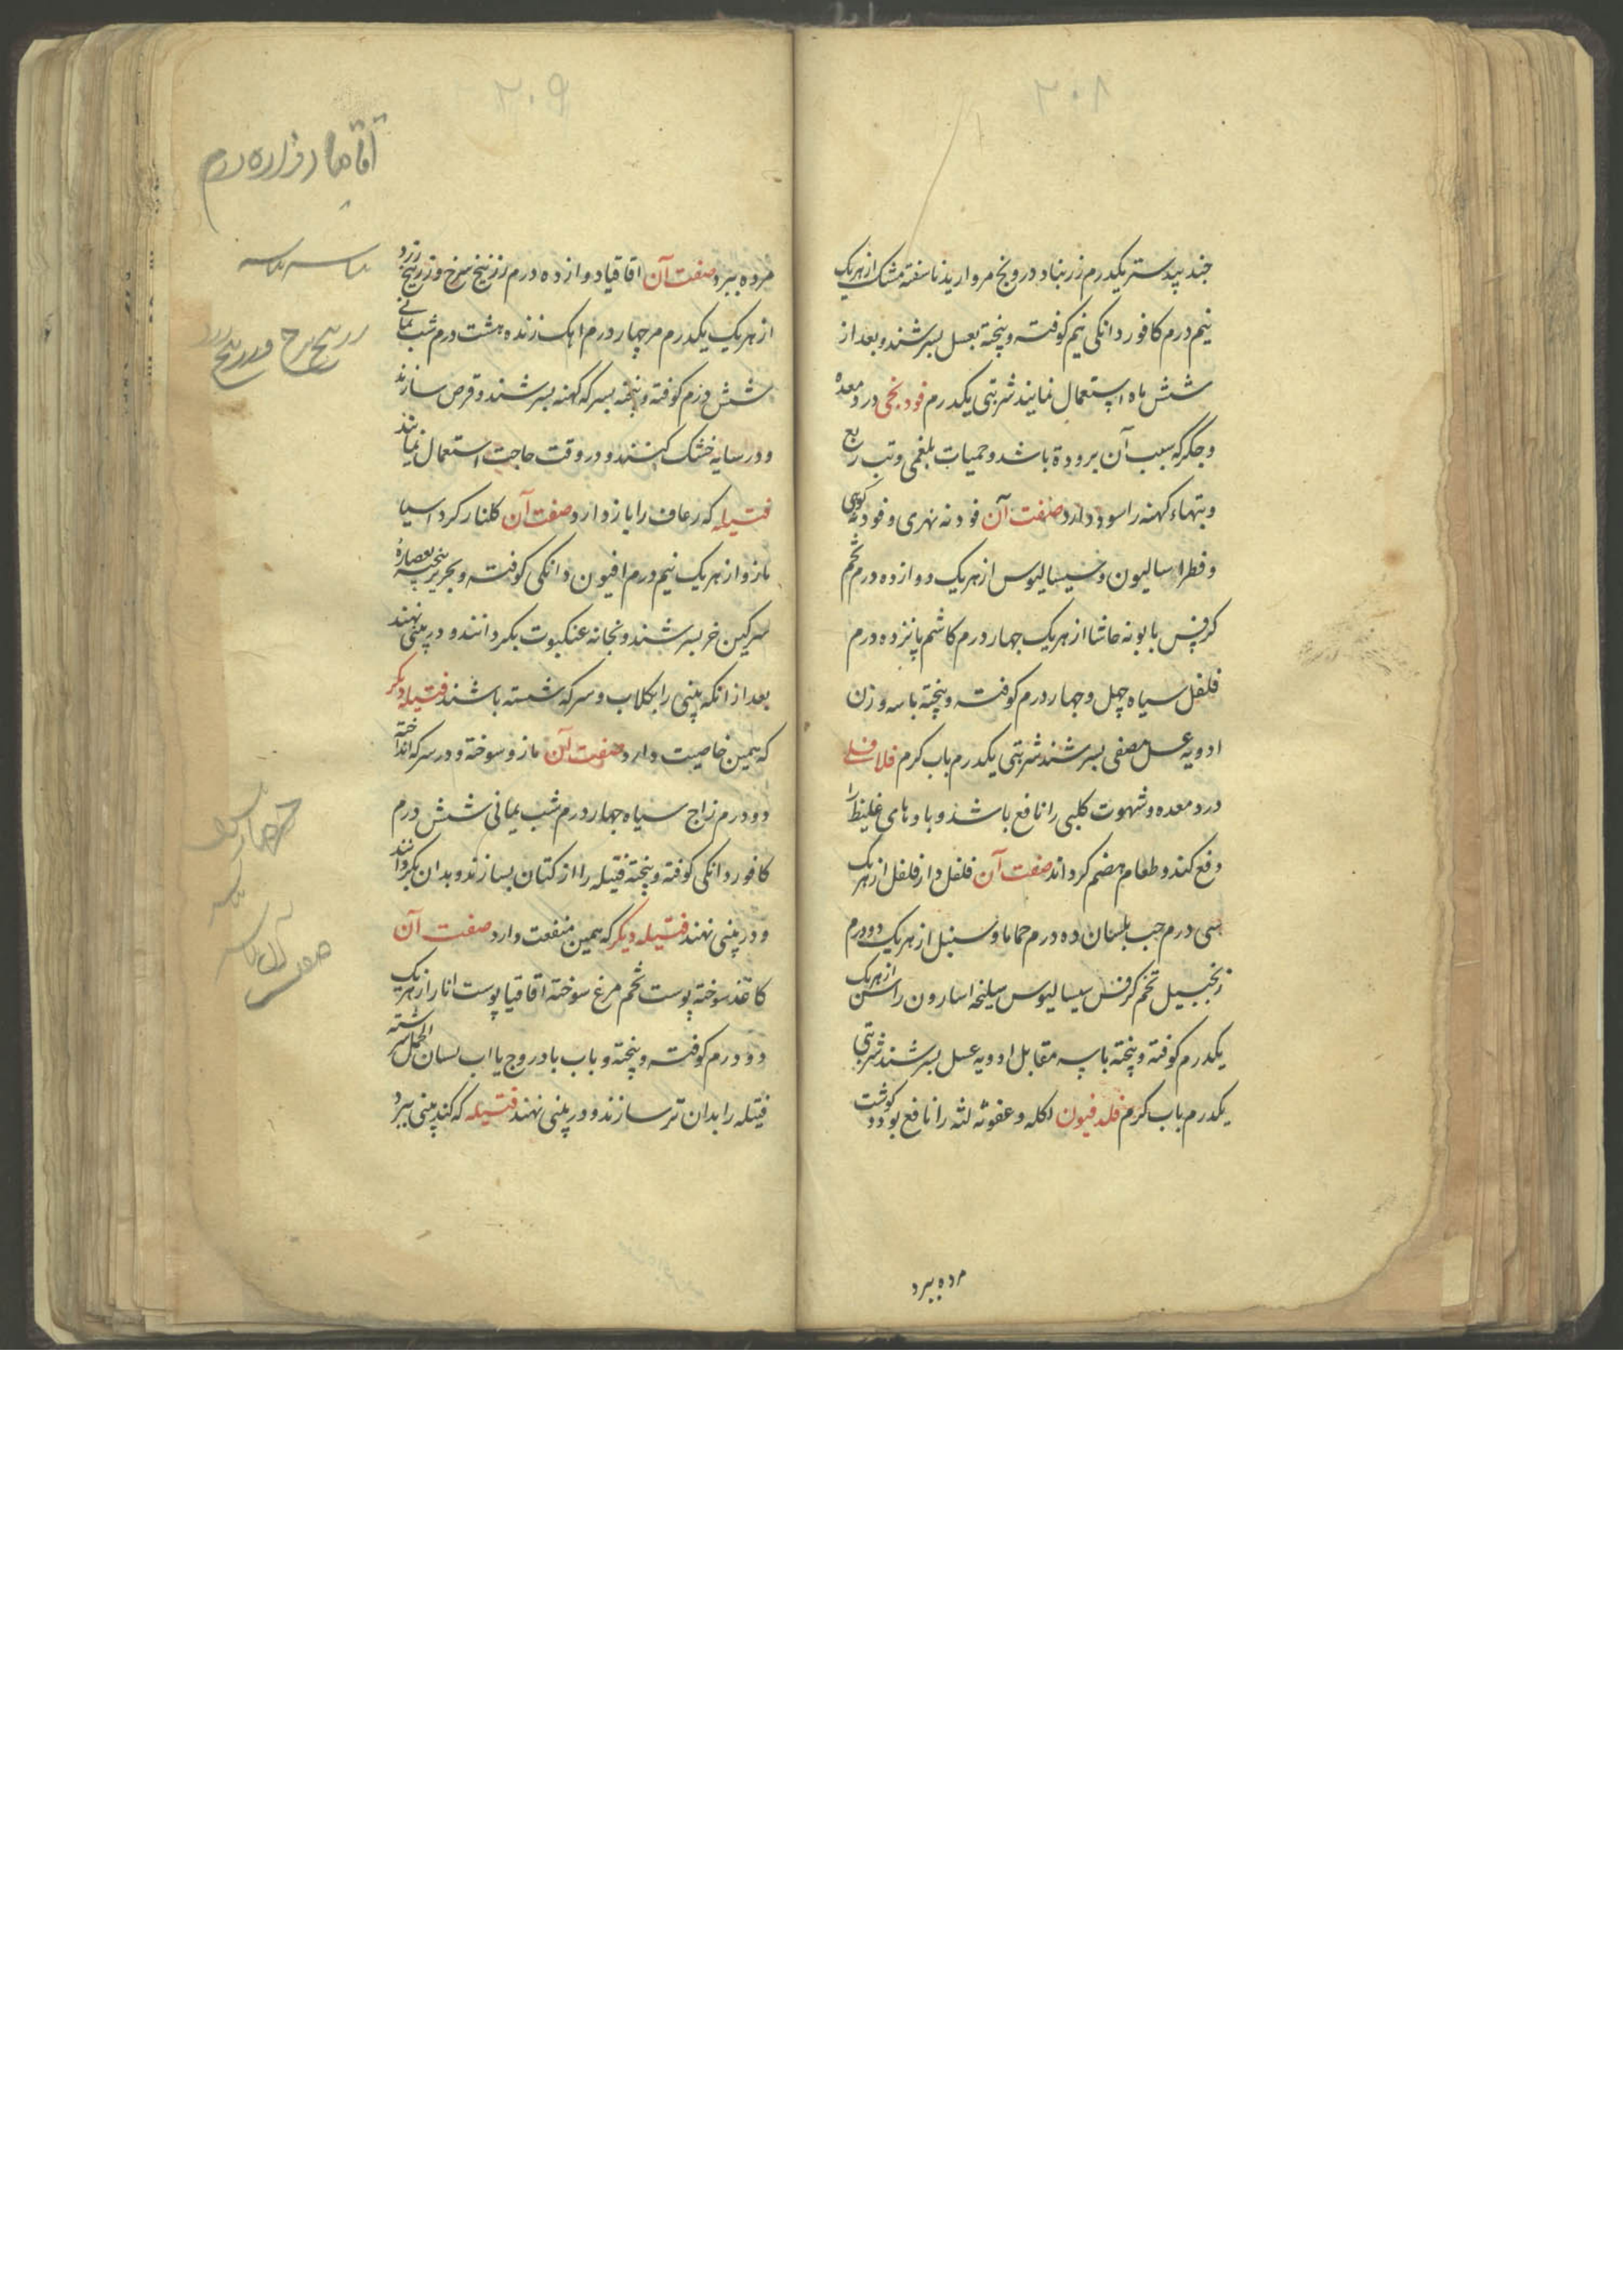 ۲۰۸
جند بیدستر یکدرم زرنباد درونج مروارید ناسفته مشک از هریک
نیم درم کافور دانکی نیم کوفته و بیخته بعسل بسرشند و بعد از
شش ماه استعمال نمایند شربتی یکدرم فودنجی درد معده
و جکر که سبب آن برودة باشد و حمیات بلغمی و تب ربع
و تبهاء کهنه را سود دارد صفت آن فودنه نهری و فودنه کوهی
و فطراسالیون و سیسالیوس از هریک دوازده درم تخم
کرفس بابونه حاشا از هریک جهار درم کاشم پانزده درم
فلفل سیاه چهل و جهار درم کوفته و بیخته با سه وزن
ادویه عسل مصفی بسرشند شربتی یکدرم باب کرم فلافلی
درد معده و شهوت کلبی را نافع باشد و بادهای غلیظ را
دفع کند و طعام هضم کرداند صفت آن فلفل دارفلفل از هریک
سی درم حب بلسان ده درم حماما و سنبل از هریک دو درم
زنجبیل تخم کرفس سیسالیوس سلیخه اسارون راسن از هریک
یکدرم کوفته و بیخته با سه مقابل ادویه عسل بسرشند شربتی
یکدرم باب کرم فلدفیون اکله و عفونه لثه را نافع بود و کوشت
مرده ببرد
۲۰۹
آقاقیا دوازده درم
مرده ببرد صفت آن اقاقیا دوازده درم زرنیخ سرخ و زرنیخ زرد
زرنیخ سرخ و زرنیخ زرد
از هریک یکدرم مر چهار درم اهک زنده هشت درم شب یمانی
شش درم کوفته و بیخته بسرکه کهنه بسرشند و قرص سازند
و در سایه خشک کنند و در وقت حاجت استعمال نمایند
فتیله که رعاف را باز دارد صفت آن کلنار کرد اسیا
مازو از هریک نیم درم افیون دانکی کوفته و بحریر بیخته بعصاره
سرکین خر بسرشند و بخانه عنکبوت بکردانند و در بینی نهند
بعد از انکه بینی را بکلاب و سرکه شسته باشند فتیله دیکر
که همین خاصیت دارد صفت آن مازو سوخته و در سرکه انداخته
دو درم زاج سیاه جهار درم شب یمانی شش درم
کافور دانکی کوفته و بیخته فتیله را از کتان بسازند و بدان بکردانند
و در بینی نهند فتیله دیکر که همین منفعت دارد صفت آن
کاغذ سوخته پوست تخم مرغ سوخته اقاقیا پوست انار از هریک
دو درم کوفته و بیخته و باب بادروج یا اب لسان الحمل سرشته
فتیله را بدان تر سازند و در بینی نهند فتیله که کند بینی ببرد